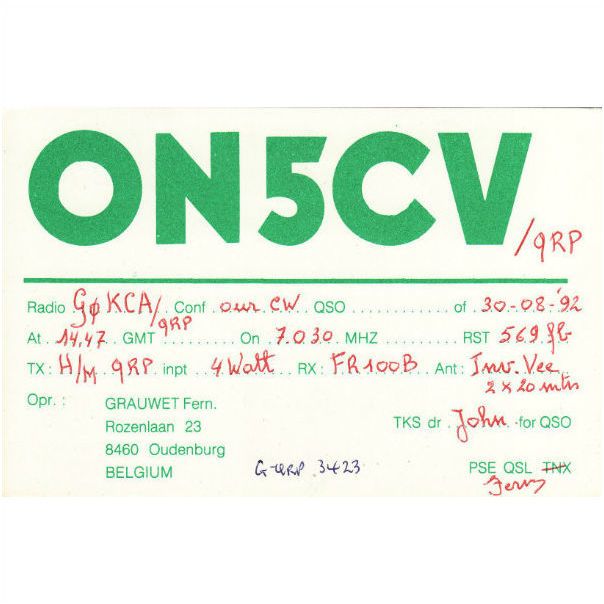 ON5CV /QRP
Radio GØKCA/QRP Conf our CW QSO ............ of 30-08-'92
At 14.47 GMT ........ On 7.030 MHZ ............ RST 569 fb
TX: H/M QRP inpt 4 Watt RX: FR100B Ant: Inv. Vee
2 x 20 mtrs
Opr.: GRAUWET Fern.
Rozenlaan 23
TKS dr John for QSO
8460 Oudenburg
BELGIUM
G-QRP 3423
PSE QSL TNX
Fern